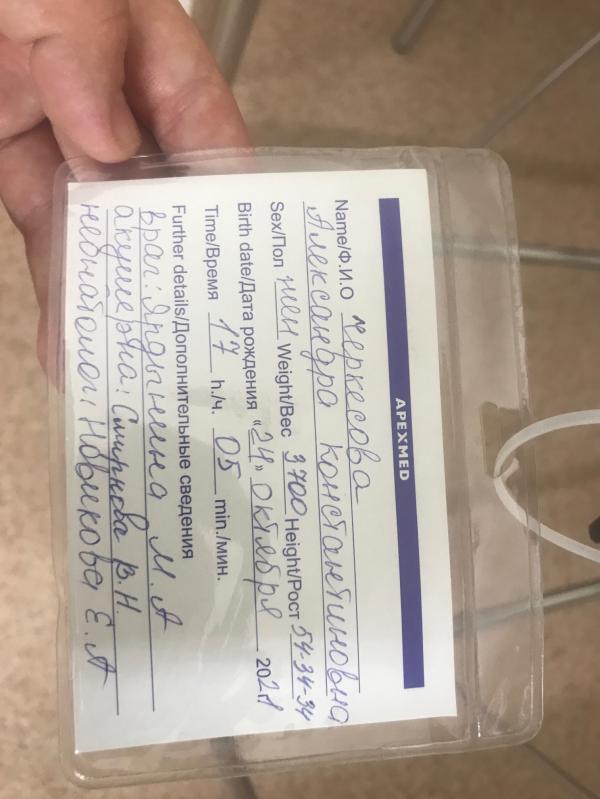 APEXMED
Name/Ф.И.О Черкесова
Александра Константиновна
Sex/Пол жен Weight/Вес 3700 Height/Рост 54-34-34
Birth date/Дата рождения «24» октября 2021
Time/Время 17 h./ч. 05 min./мин.
Further details/Дополнительные сведения
врач: М.А
акушерка: Смирнова В.Н.
неонатолог: Новикова Е.А